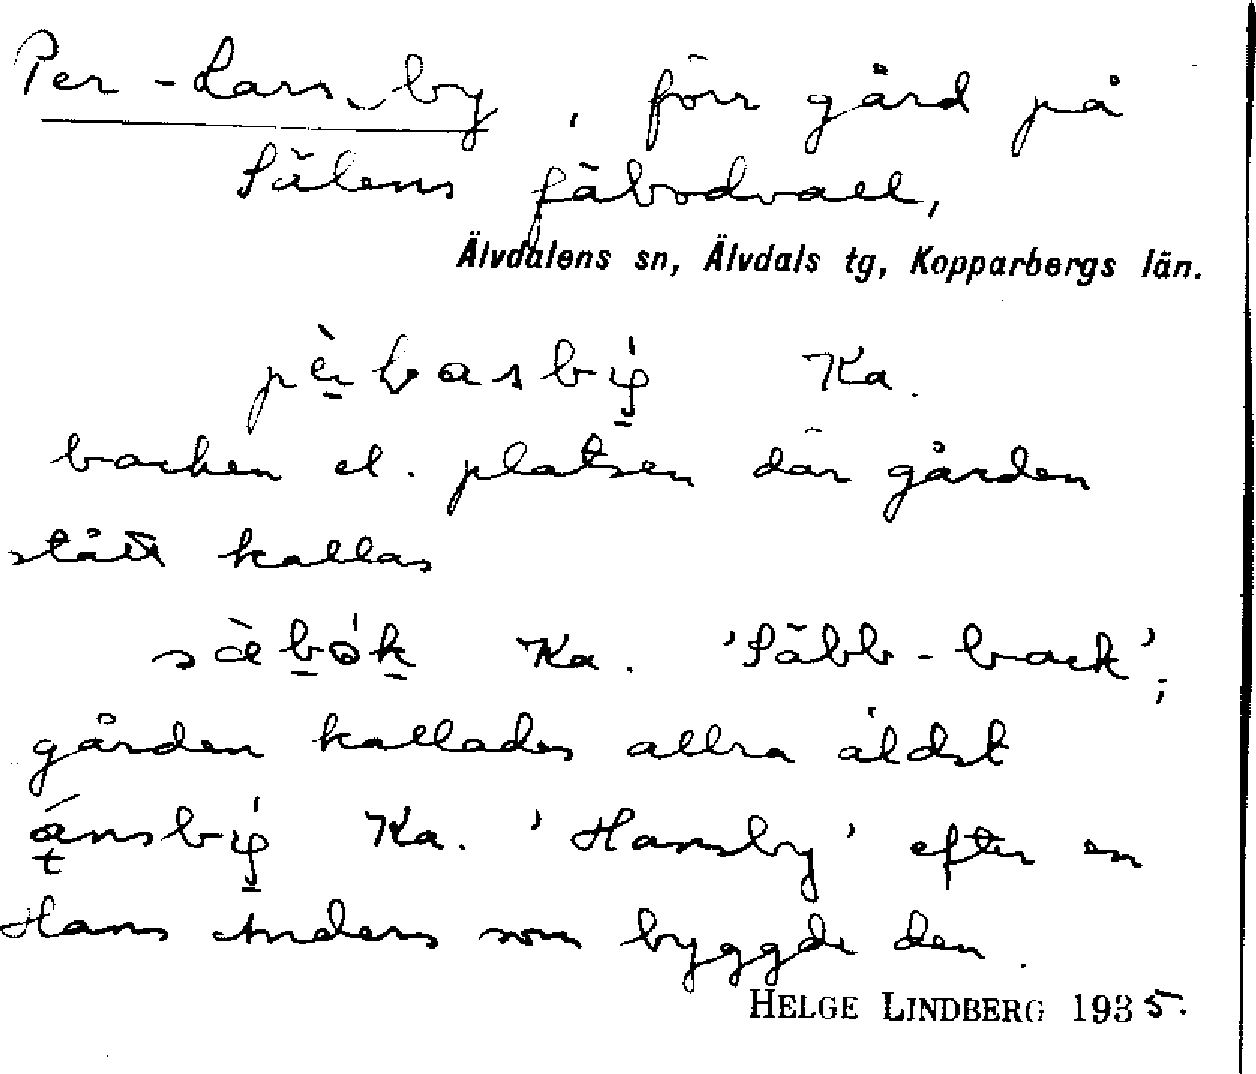 Per-Lars-by, förr gård på
Sälens fäbodvall,
Älvdalens sn, Älvdals tg, Kopparbergs län.
Ka.
backen el. platsen där gården
stått kallas
Ka. 'Säbb-back';
gården kallades allra äldst
Ka. 'Hansby' efter en
Hans Anders som byggde den.
HELGE LINDBERG 1935.